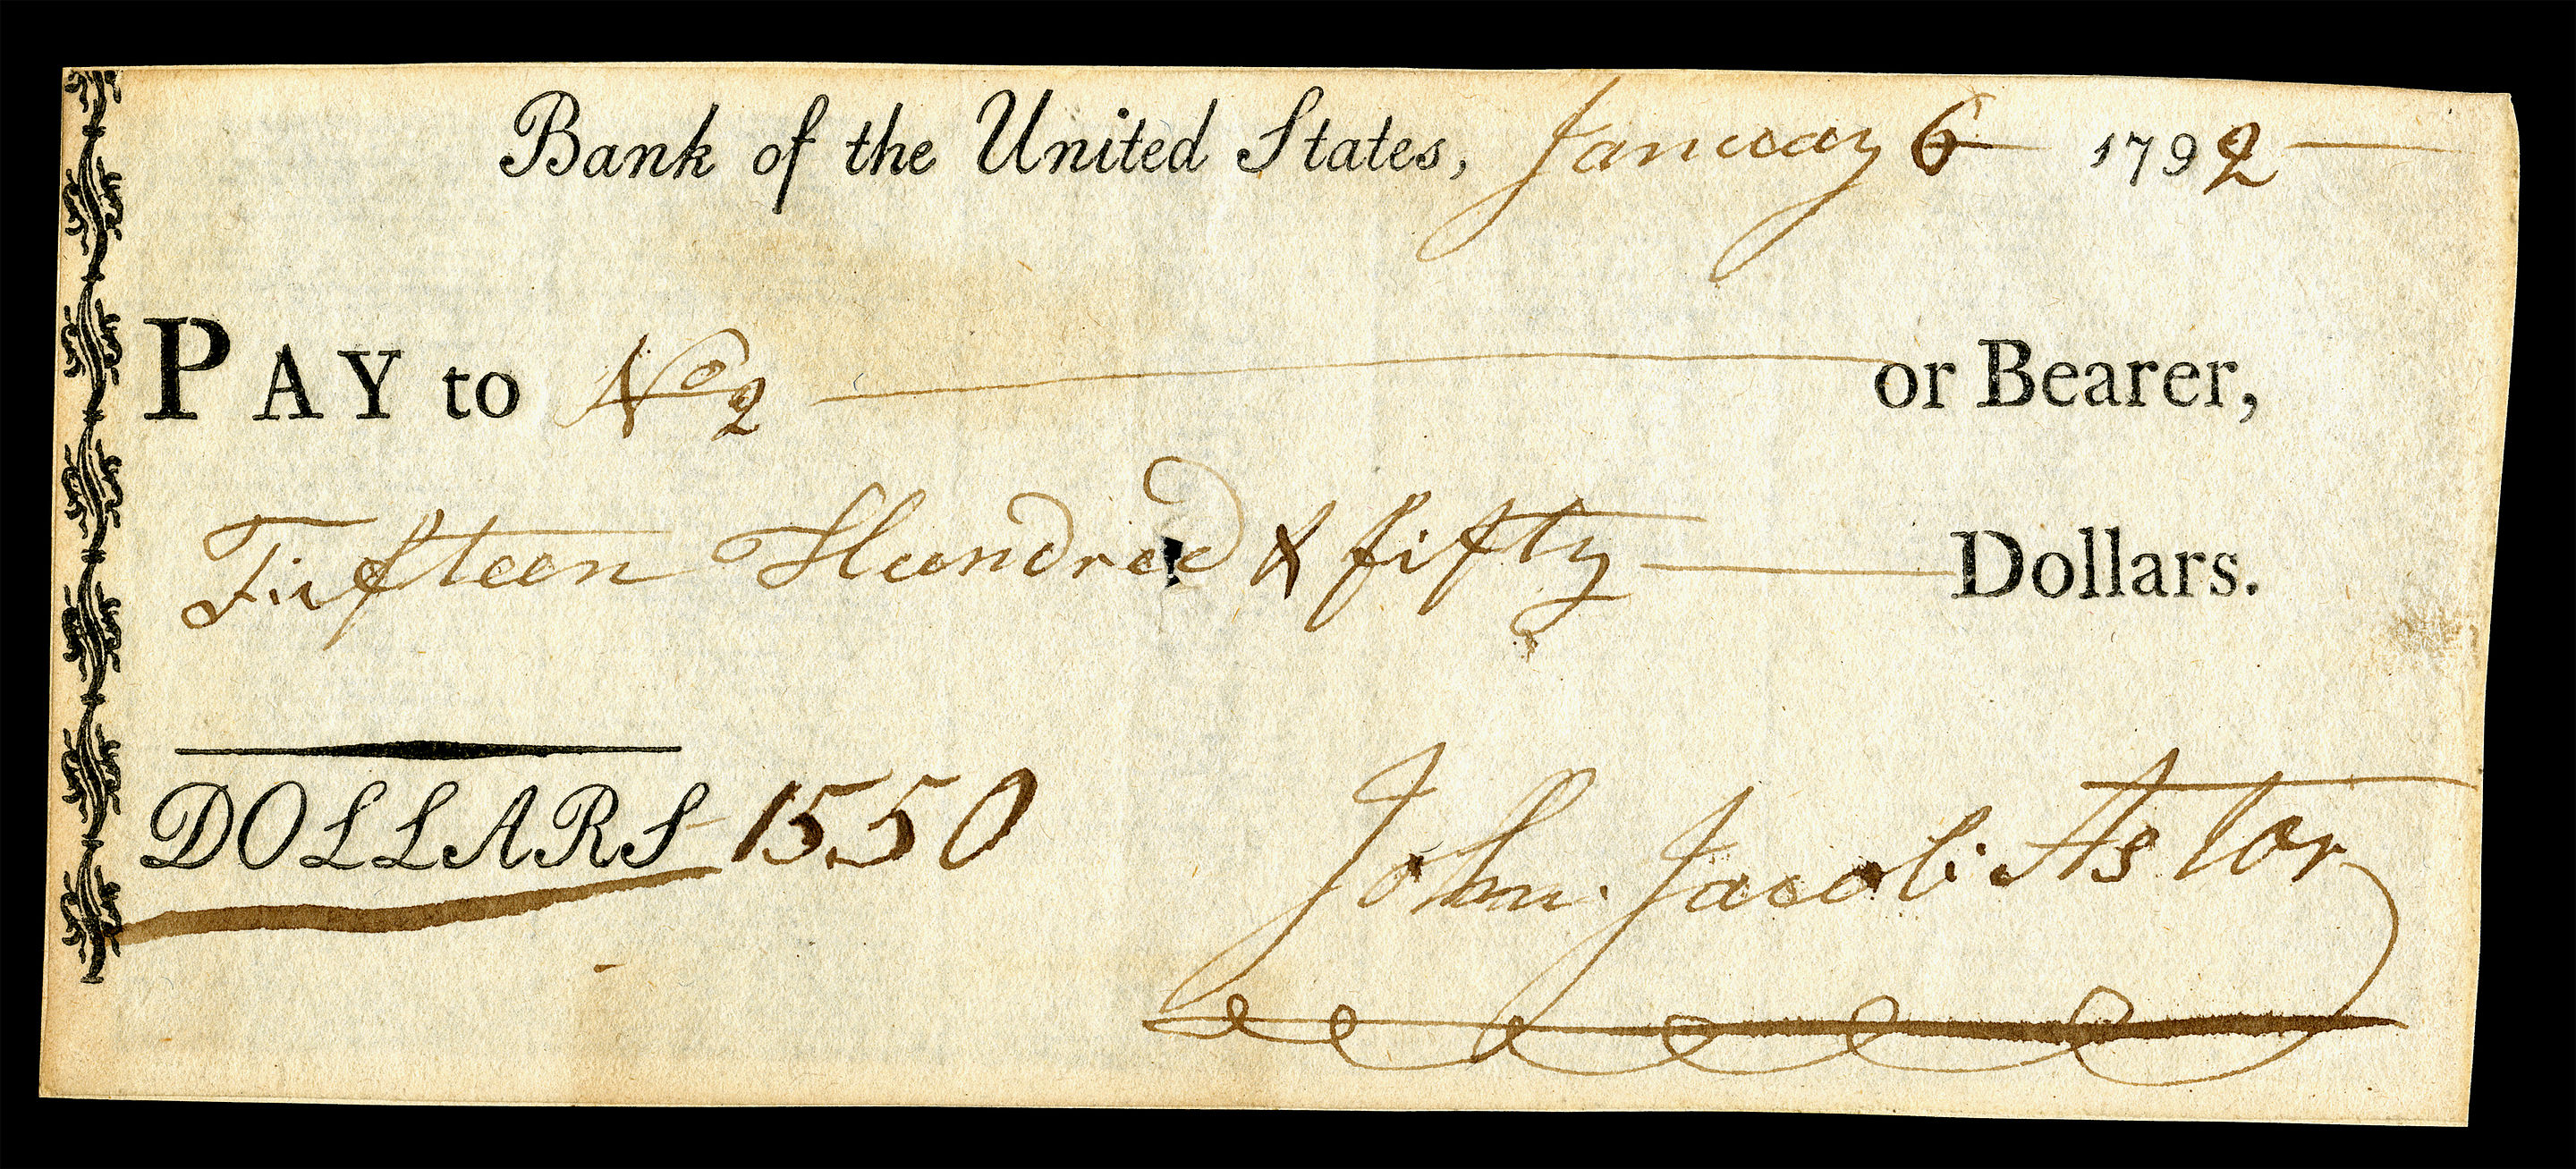 Bank of the United States, January 6 1792
PAY to No 2 or Bearer,
Fiifteen Hundred & fifty Dollars.
DOLLARS 1550
John Jacob Astor